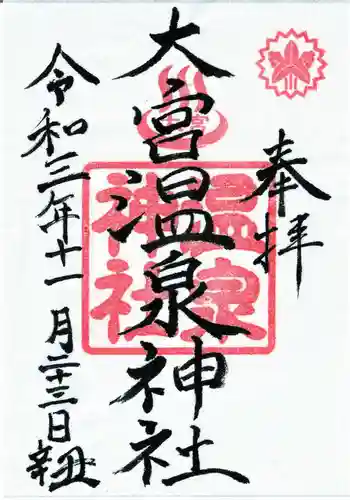 奉拝
大宮温泉神社
令和三年十一月二十三日
辛丑
温泉
神社